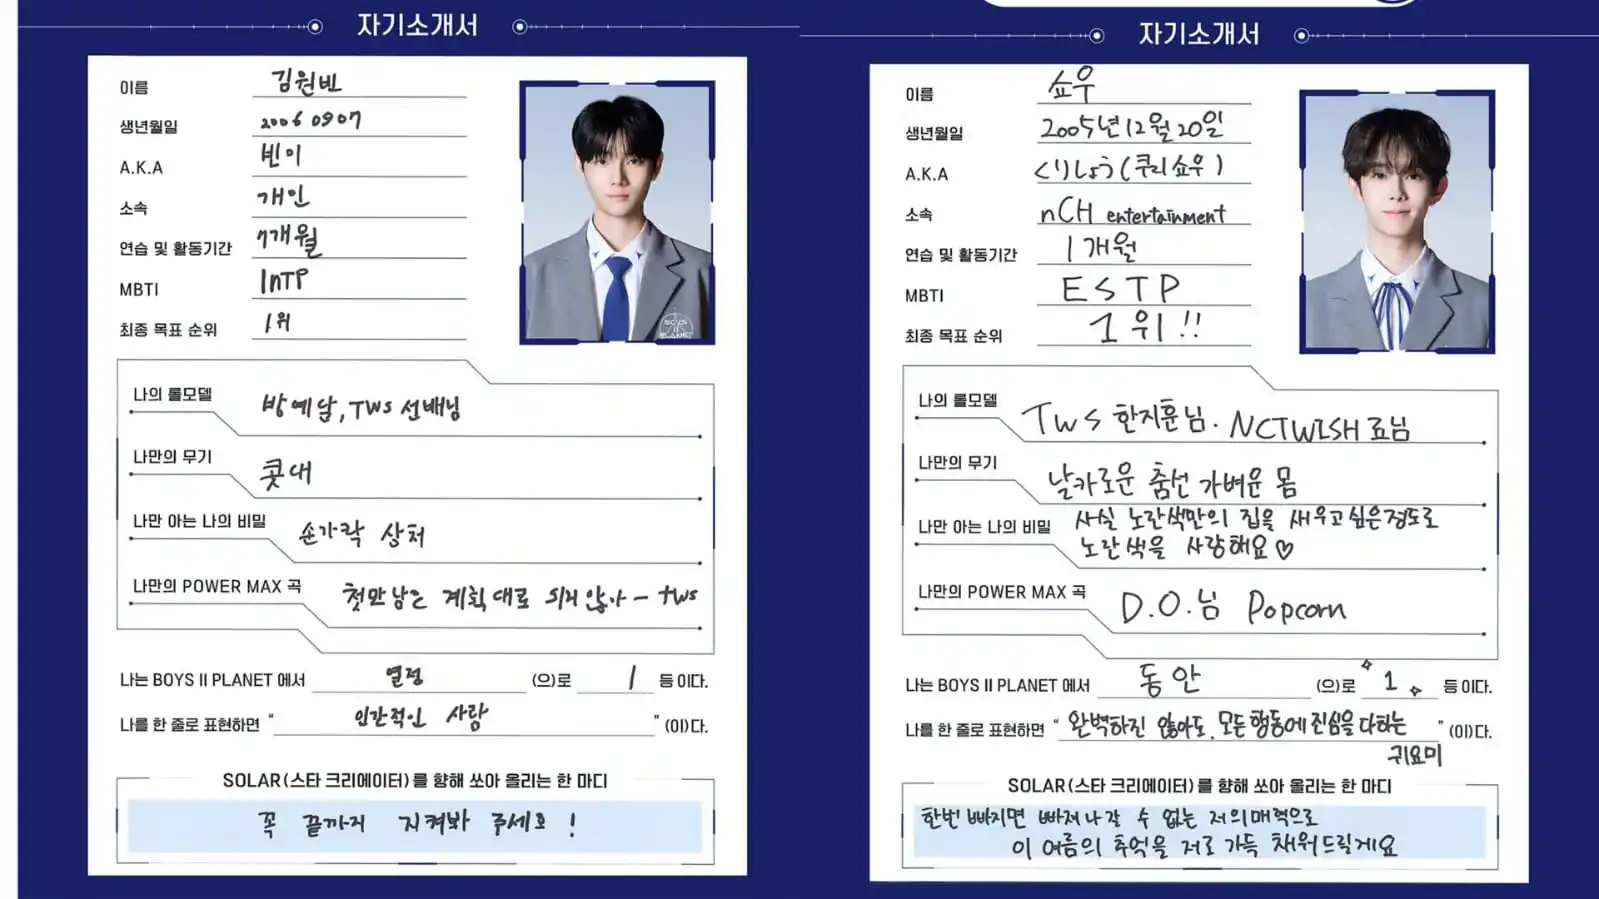 자기소개서
이름 김원빈
생년월일 2006 0907
A.K.A 빈이
소속 개인
연습 및 활동기간 7개월
MBTI INTP
최종 목표 순위 1위
나의 롤모델 방예담, TWS 선배님
나만의 무기 콧대
나만 아는 나의 비밀 손가락 상처
나만의 POWER MAX 곡 첫만남은 계획대로 되지 않아 - TWS
나는 BOYS II PLANET 에서 열정 (으)로 1 등 이다.
나를 한 줄로 표현하면 “ 인간적인 사람 ” (이)다.
SOLAR(스타 크리에이터)를 향해 쏘아 올리는 한 마디
꼭 끝까지 지켜봐 주세요 !
자기소개서
이름 쇼우
생년월일 2005년 12월 20일
A.K.A くりしょう(쿠리쇼우)
소속 nCH entertainment
연습 및 활동기간 1개월
MBTI ESTP
최종 목표 순위 1위!!
나의 롤모델 TWS 한지훈님. NCTWISH 료님
나만의 무기 날카로운 춤선 가벼운 몸
나만 아는 나의 비밀 사실 노란색만의 집을 세우고싶은정도로
노란색을 사랑해요♡
나만의 POWER MAX 곡 D.O.님 Popcorn
나는 BOYS II PLANET 에서 동안 (으)로 1 등 이다.
나를 한 줄로 표현하면 “ 완벽하진 않아도, 모든행동에진심을다하는 ” (이)다.
귀요미
SOLAR(스타 크리에이터)를 향해 쏘아 올리는 한 마디
한번 빠지면 빠져나갈 수 없는 저의매력으로
이 여름의 추억을 저로 가득 채워드릴게요